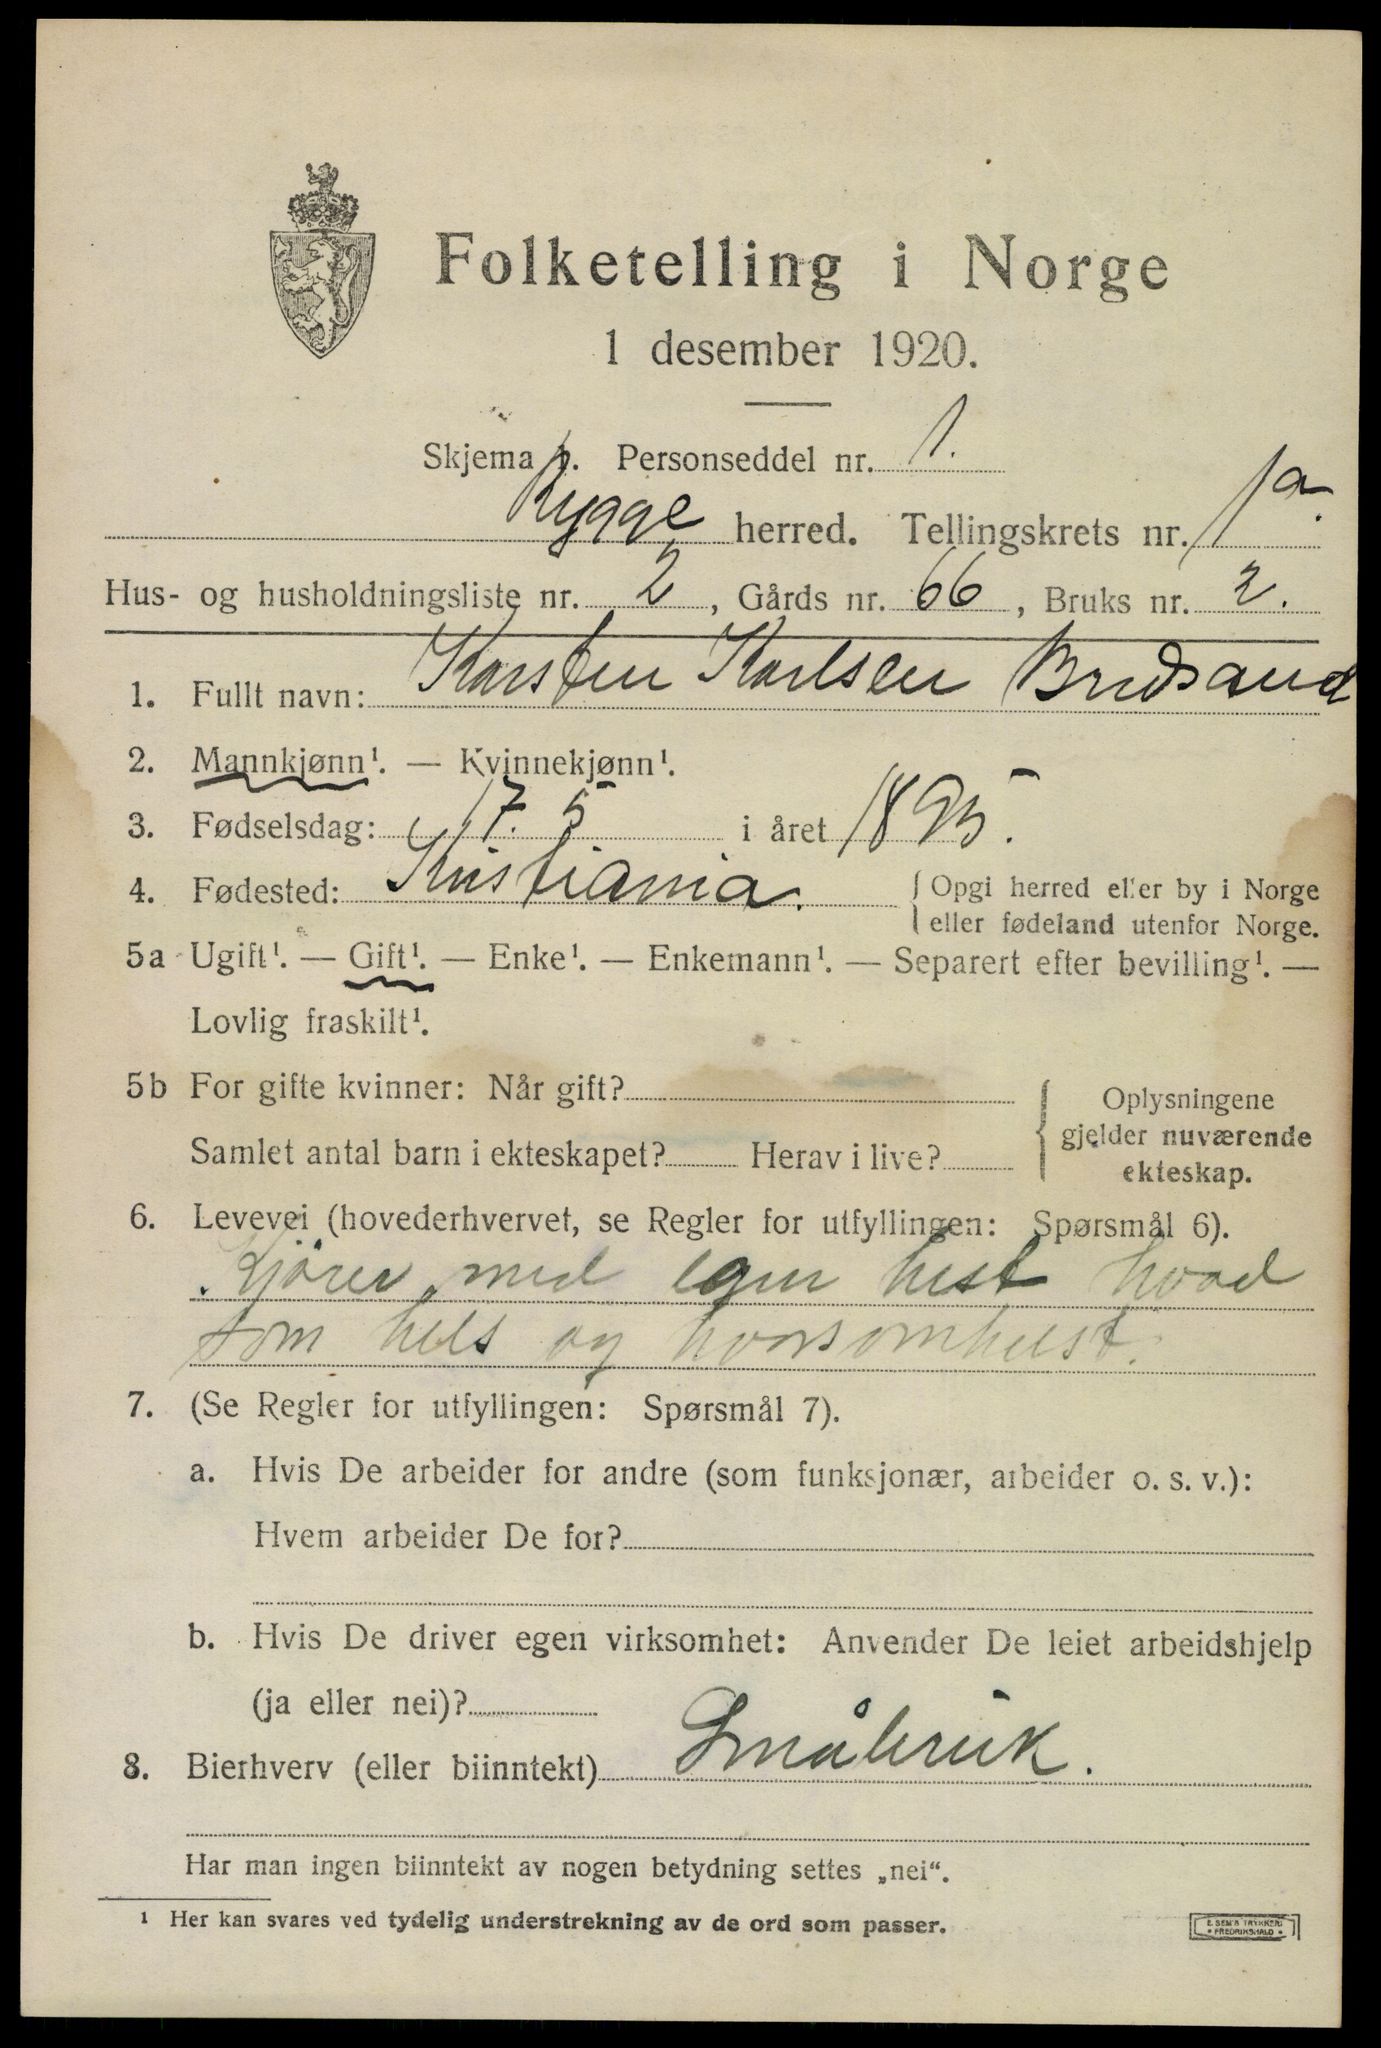 Folketelling i Norge
1 desember 1920.
Skjema p. Personseddel nr. 1.
Rygge herred. Tellingskrets nr. 1a.
Hus- og husholdningsliste nr. 2, Gårds nr. 66, Bruks nr. 2.
1. Fullt navn: Karsten Karlsen Brudsand
2. Mannkjønn¹. — Kvinnekjønn¹.
3. Fødselsdag: 17. 5 i året 1895.
4. Fødested: Kristiania. Opgi herred eller by i Norge
eller fødeland utenfor Norge.
5a Ugift¹. — Gift¹. — Enke¹. — Enkemann¹. — Separert efter bevilling¹. —
Lovlig fraskilt¹.
5b For gifte kvinner: Når gift? Oplysningene
gjelder nuværende
Samlet antal barn i ekteskapet? Herav i live? ekteskap.
6. Levevei (hovederhvervet, se Regler for utfyllingen: Spørsmål 6).
Kjører med egen hest hvad
som hels og hvorsomhelst.
7. (Se Regler for utfyllingen: Spørsmål 7).
a. Hvis De arbeider for andre (som funksjonær, arbeider o. s. v.):
Hvem arbeider De for?
b. Hvis De driver egen virksomhet: Anvender De leiet arbeidshjelp
(ja eller nei)?
8. Bierhverv (eller biinntekt) Småbruk.
Har man ingen biinntekt av nogen betydning settes „nei“.
¹ Her kan svares ved tydelig understrekning av de ord som passer.
E. SEM'S TRYKKERI
• FREDRIKSHALD •